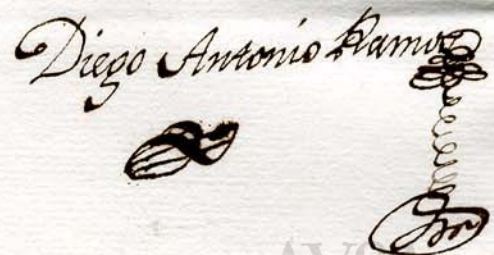 Diego Antonio Ramos